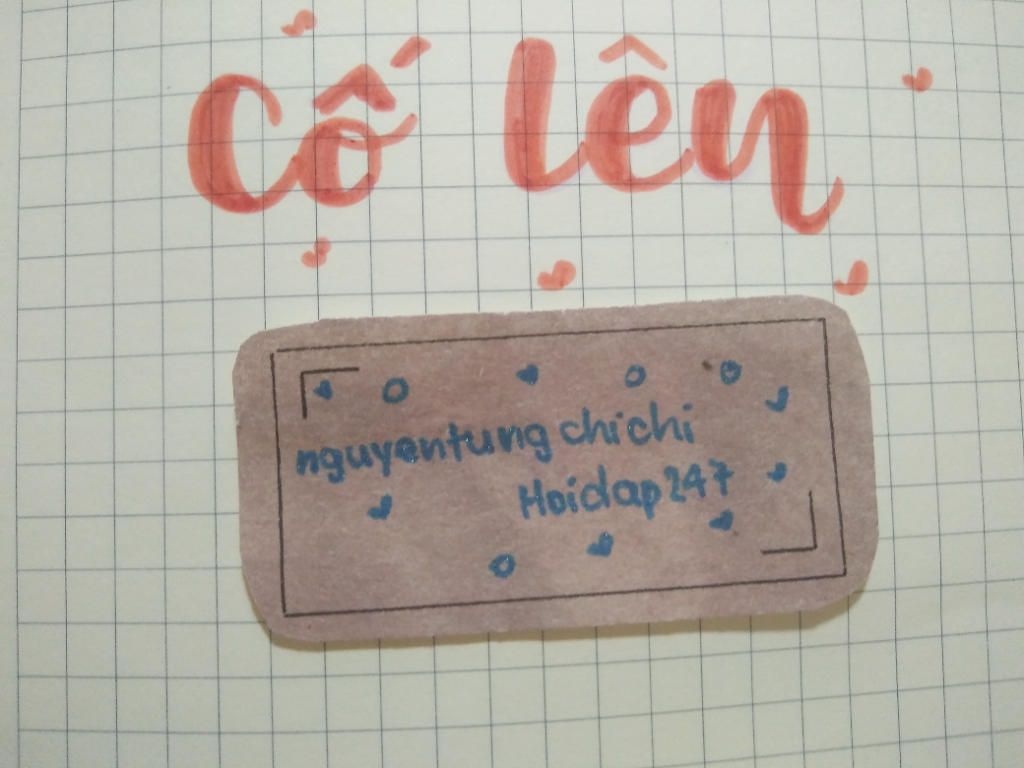 Cố lên
nguyentung chichi
Hoidap247